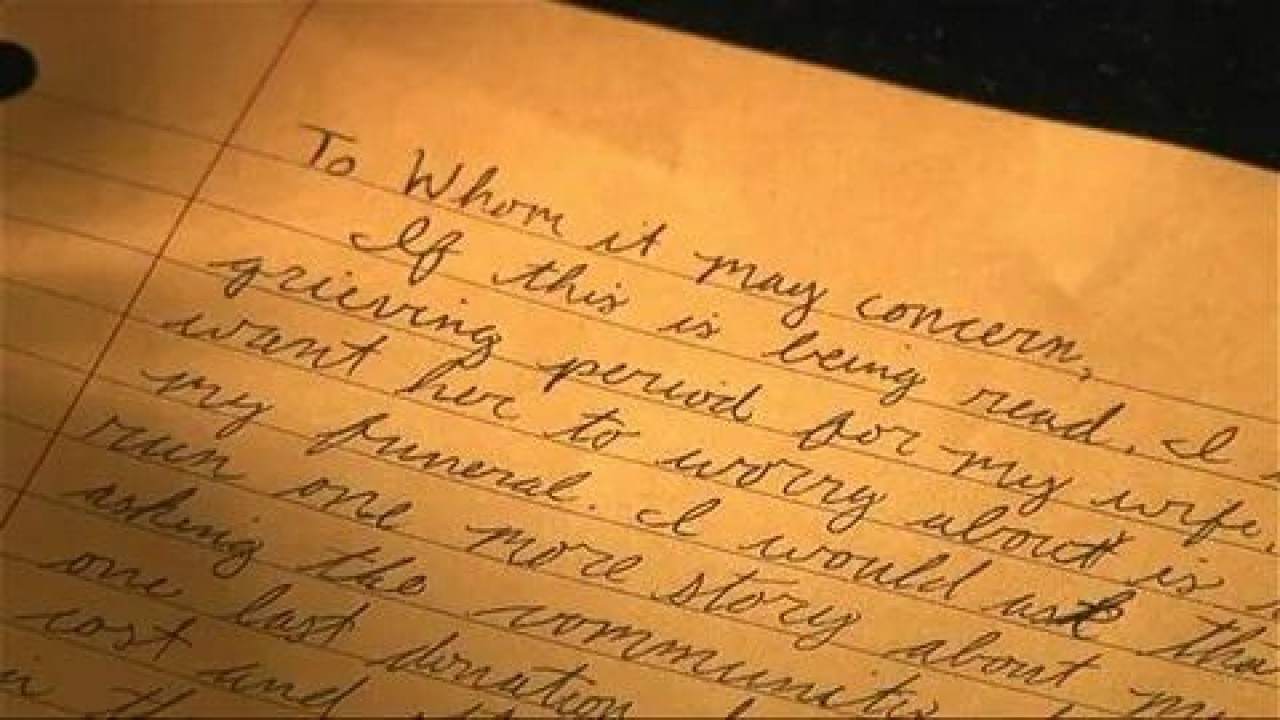 To Whom it may concern,
If this is being read, I
grieving period for my wife,
want her to worry about is
my funeral. I would ask tha
run one more story about my
asking the community
one last donation
cost and
in th